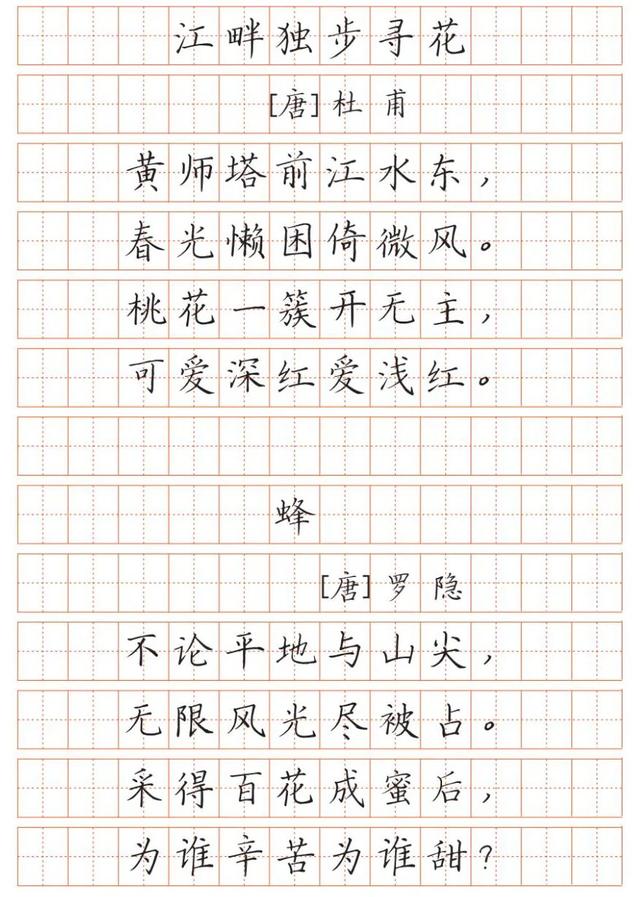 江畔独步寻花
[唐]杜甫
黄师塔前江水东，
春光懒困倚微风。
桃花一簇开无主，
可爱深红爱浅红。
蜂
[唐]罗隐
不论平地与山尖，
无限风光尽被占。
采得百花成蜜后，
为谁辛苦为谁甜？